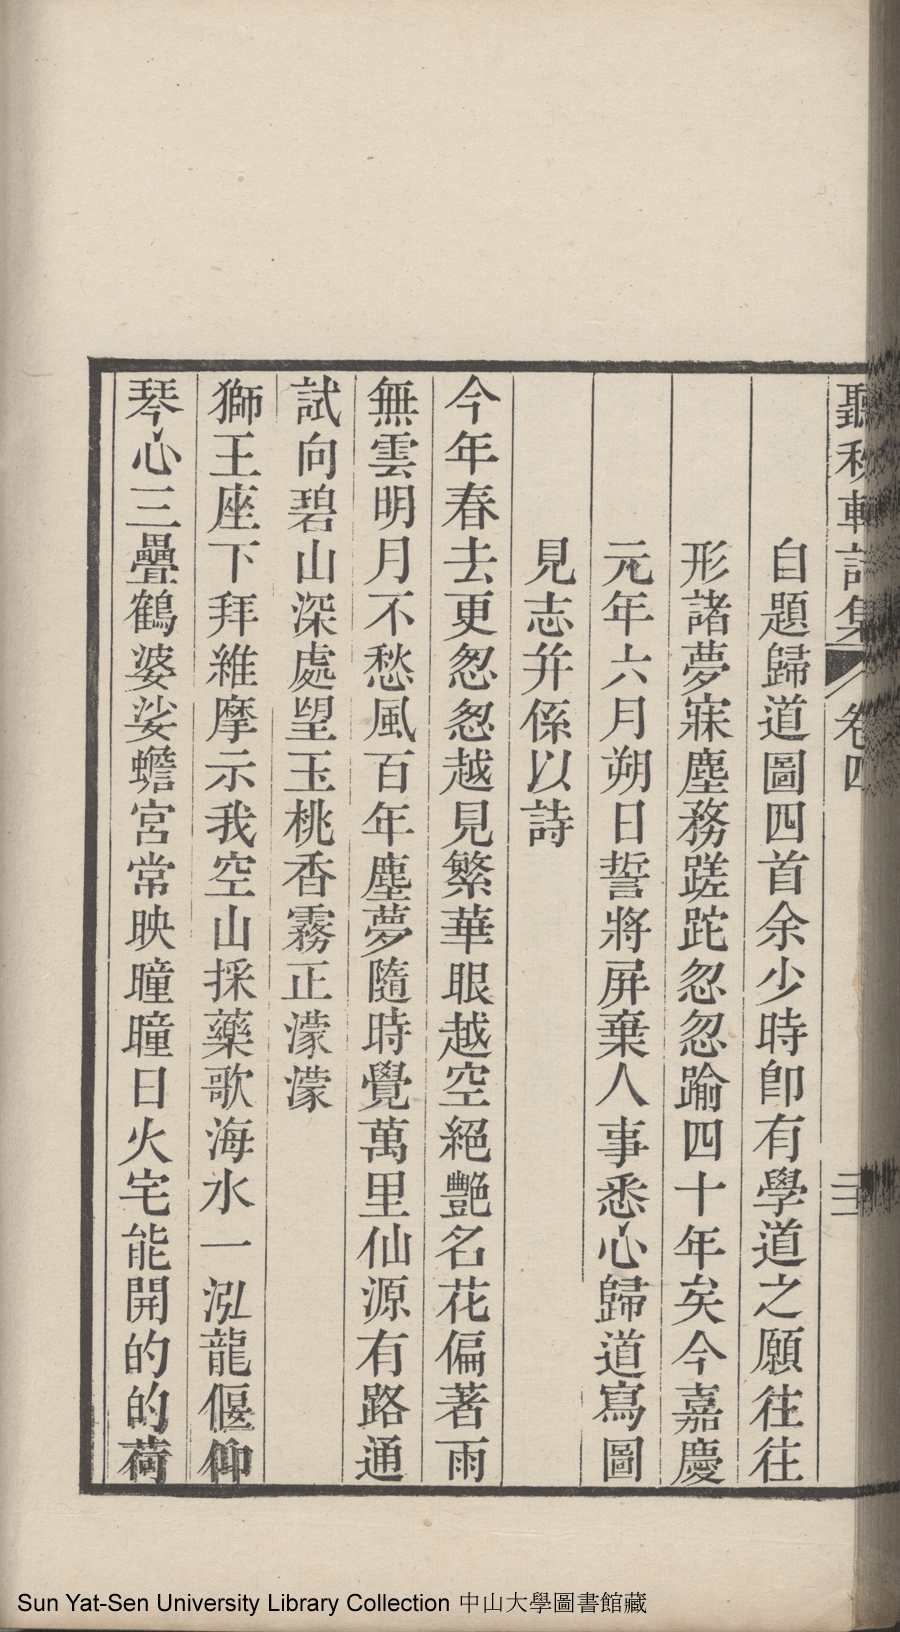 聽秋軒詩集 卷四 三
自題歸道圖四首余少時卽有學道之願往往
形諸夢寐塵務蹉跎忽忽踰四十年矣今嘉慶
元年六月朔日誓將屏棄人事悉心歸道寫圖
見志幷係以詩
今年春去更怱怱越見繁華眼越空絕艷名花偏著雨
無雲明月不愁風百年塵夢隨時覺萬里仙源有路通
試向碧山深處望玉桃香霧正濛濛
獅王座下拜維摩示我空山採藥歌海水一泓龍偃仰
琴心三疊鶴婆娑蟾宮常映曈曈日火宅能開的的荷
Sun Yat-Sen University Library Collection 中山大學圖書館藏